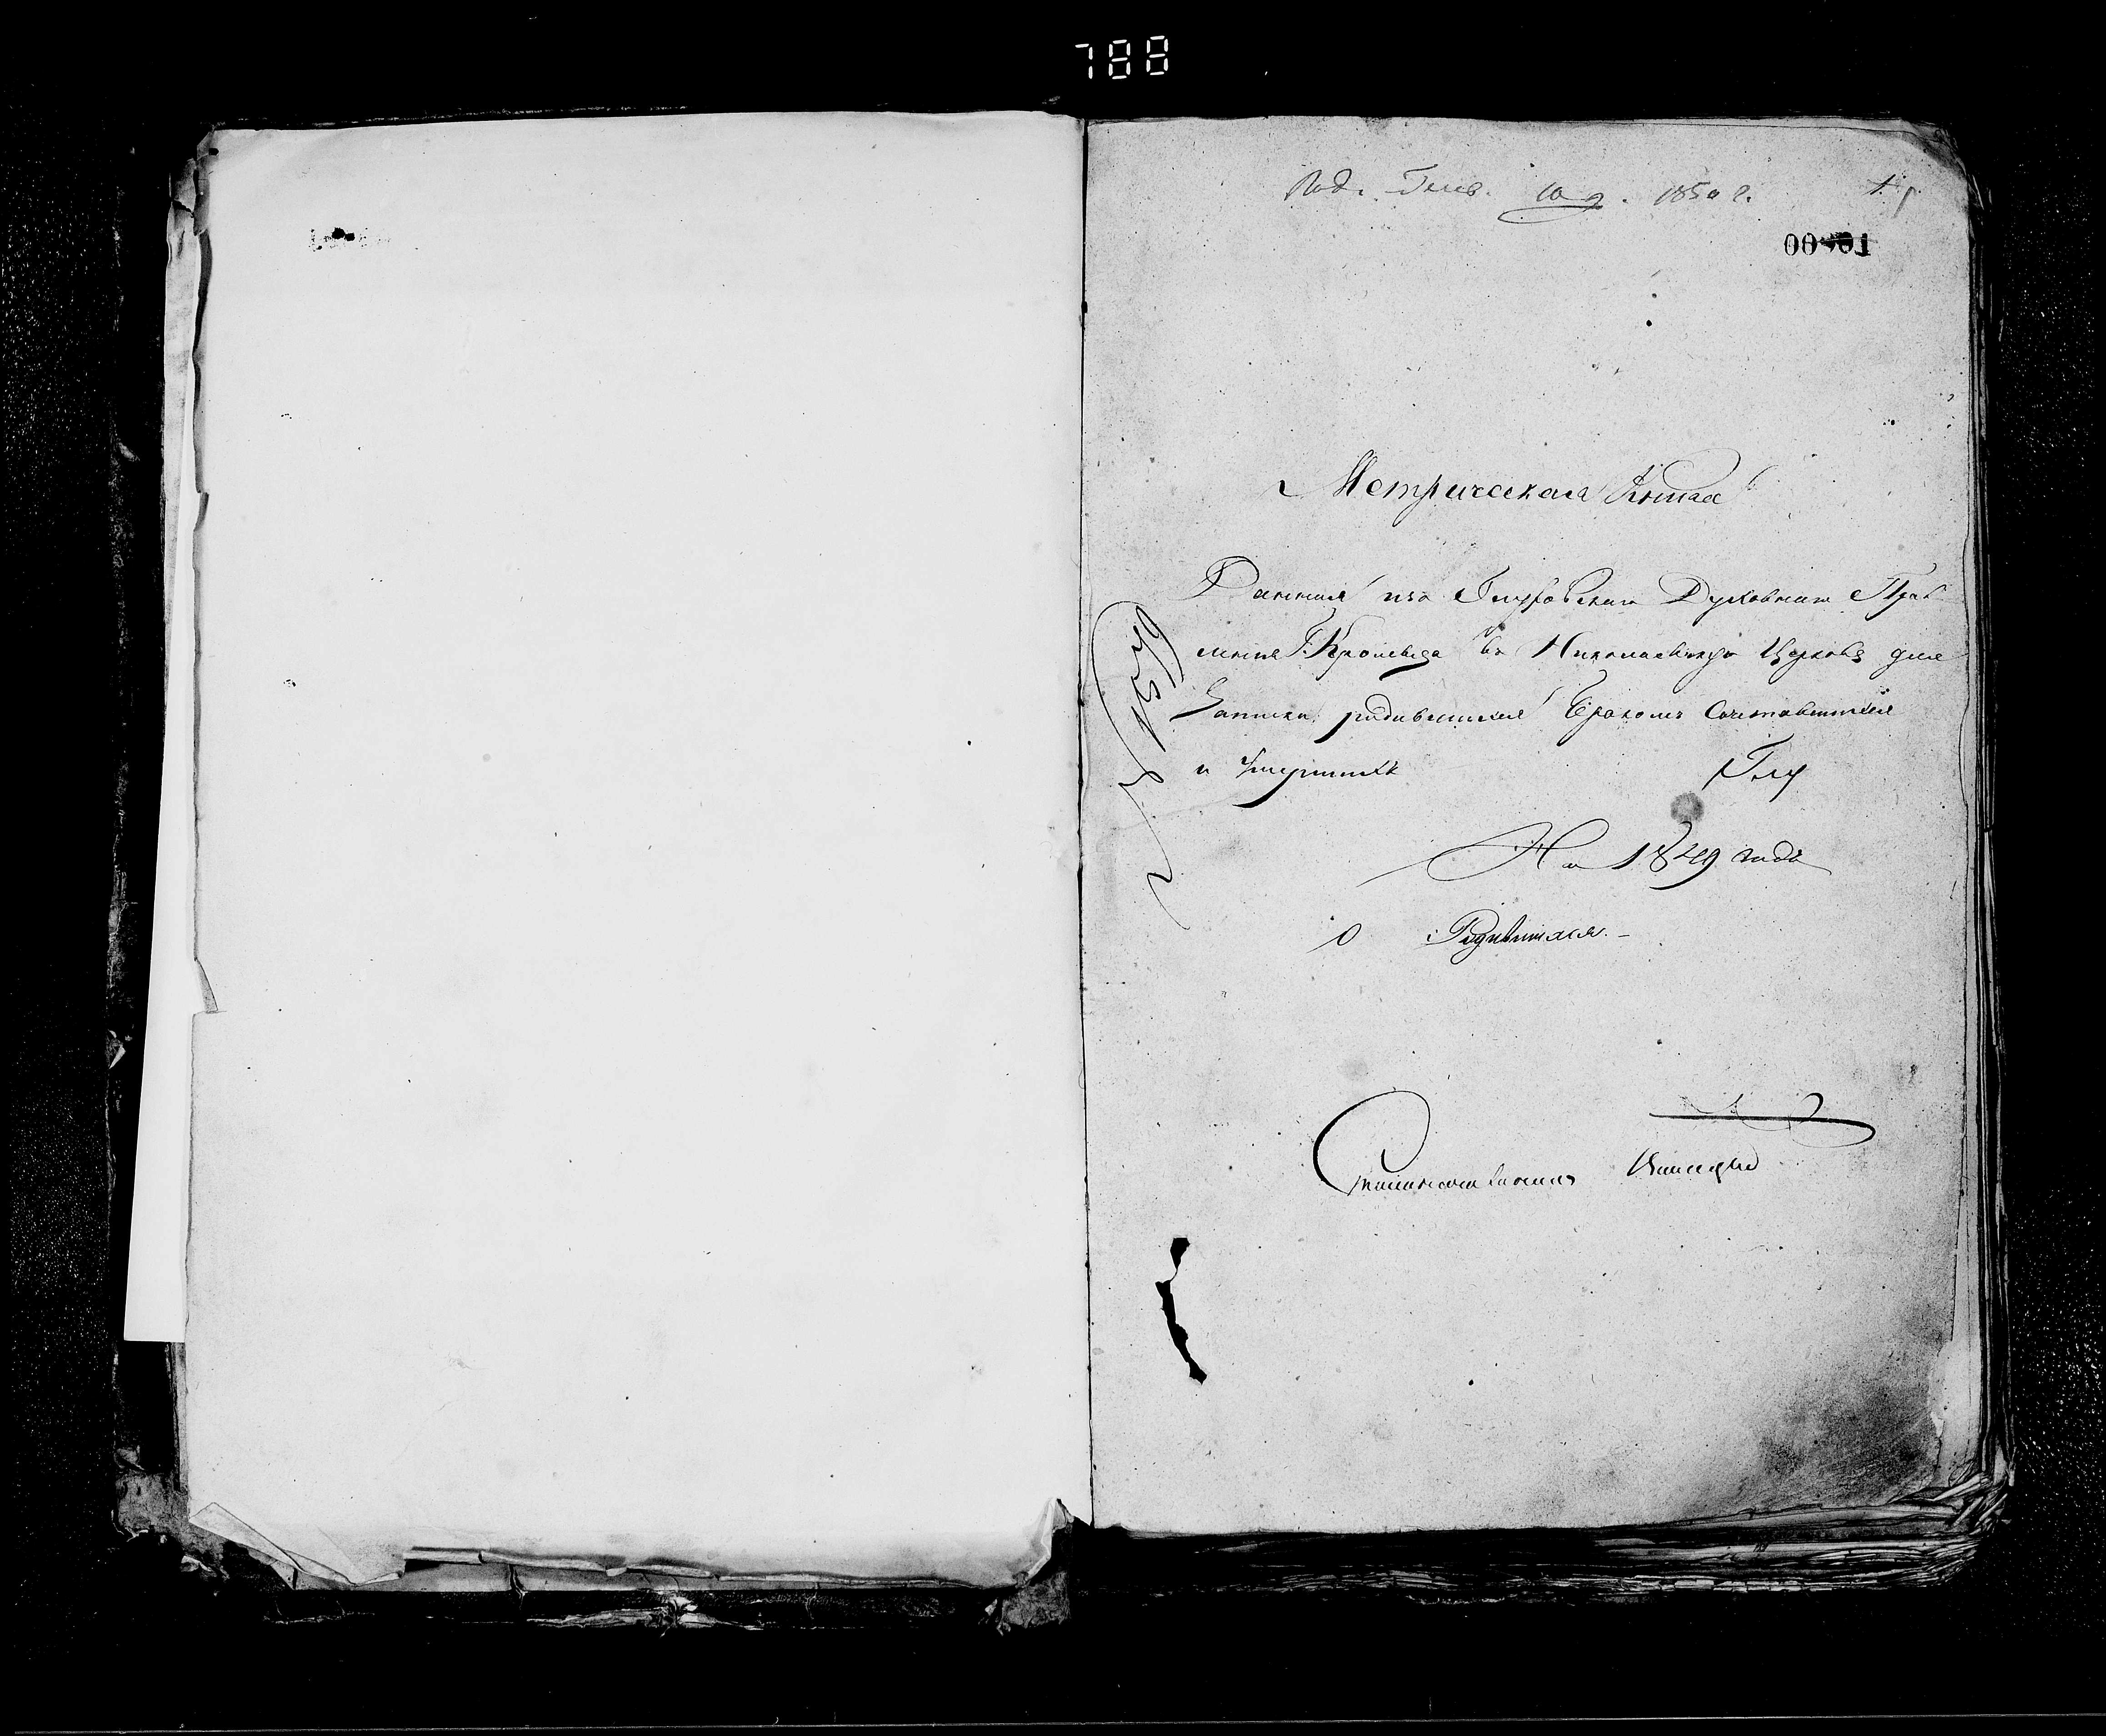 788
Род. Генв. 10 д. 1850 г.
00001
Метрическая Книга
Данная изъ Глуховскаго Духовнаго Прав
ленія Г. Кролевца въ Николаевскую Церковь для
Записки родившихся Бракомъ Сочетавшихся
и Умершихъ
Глу
На 1849 годъ
О Родившихся.